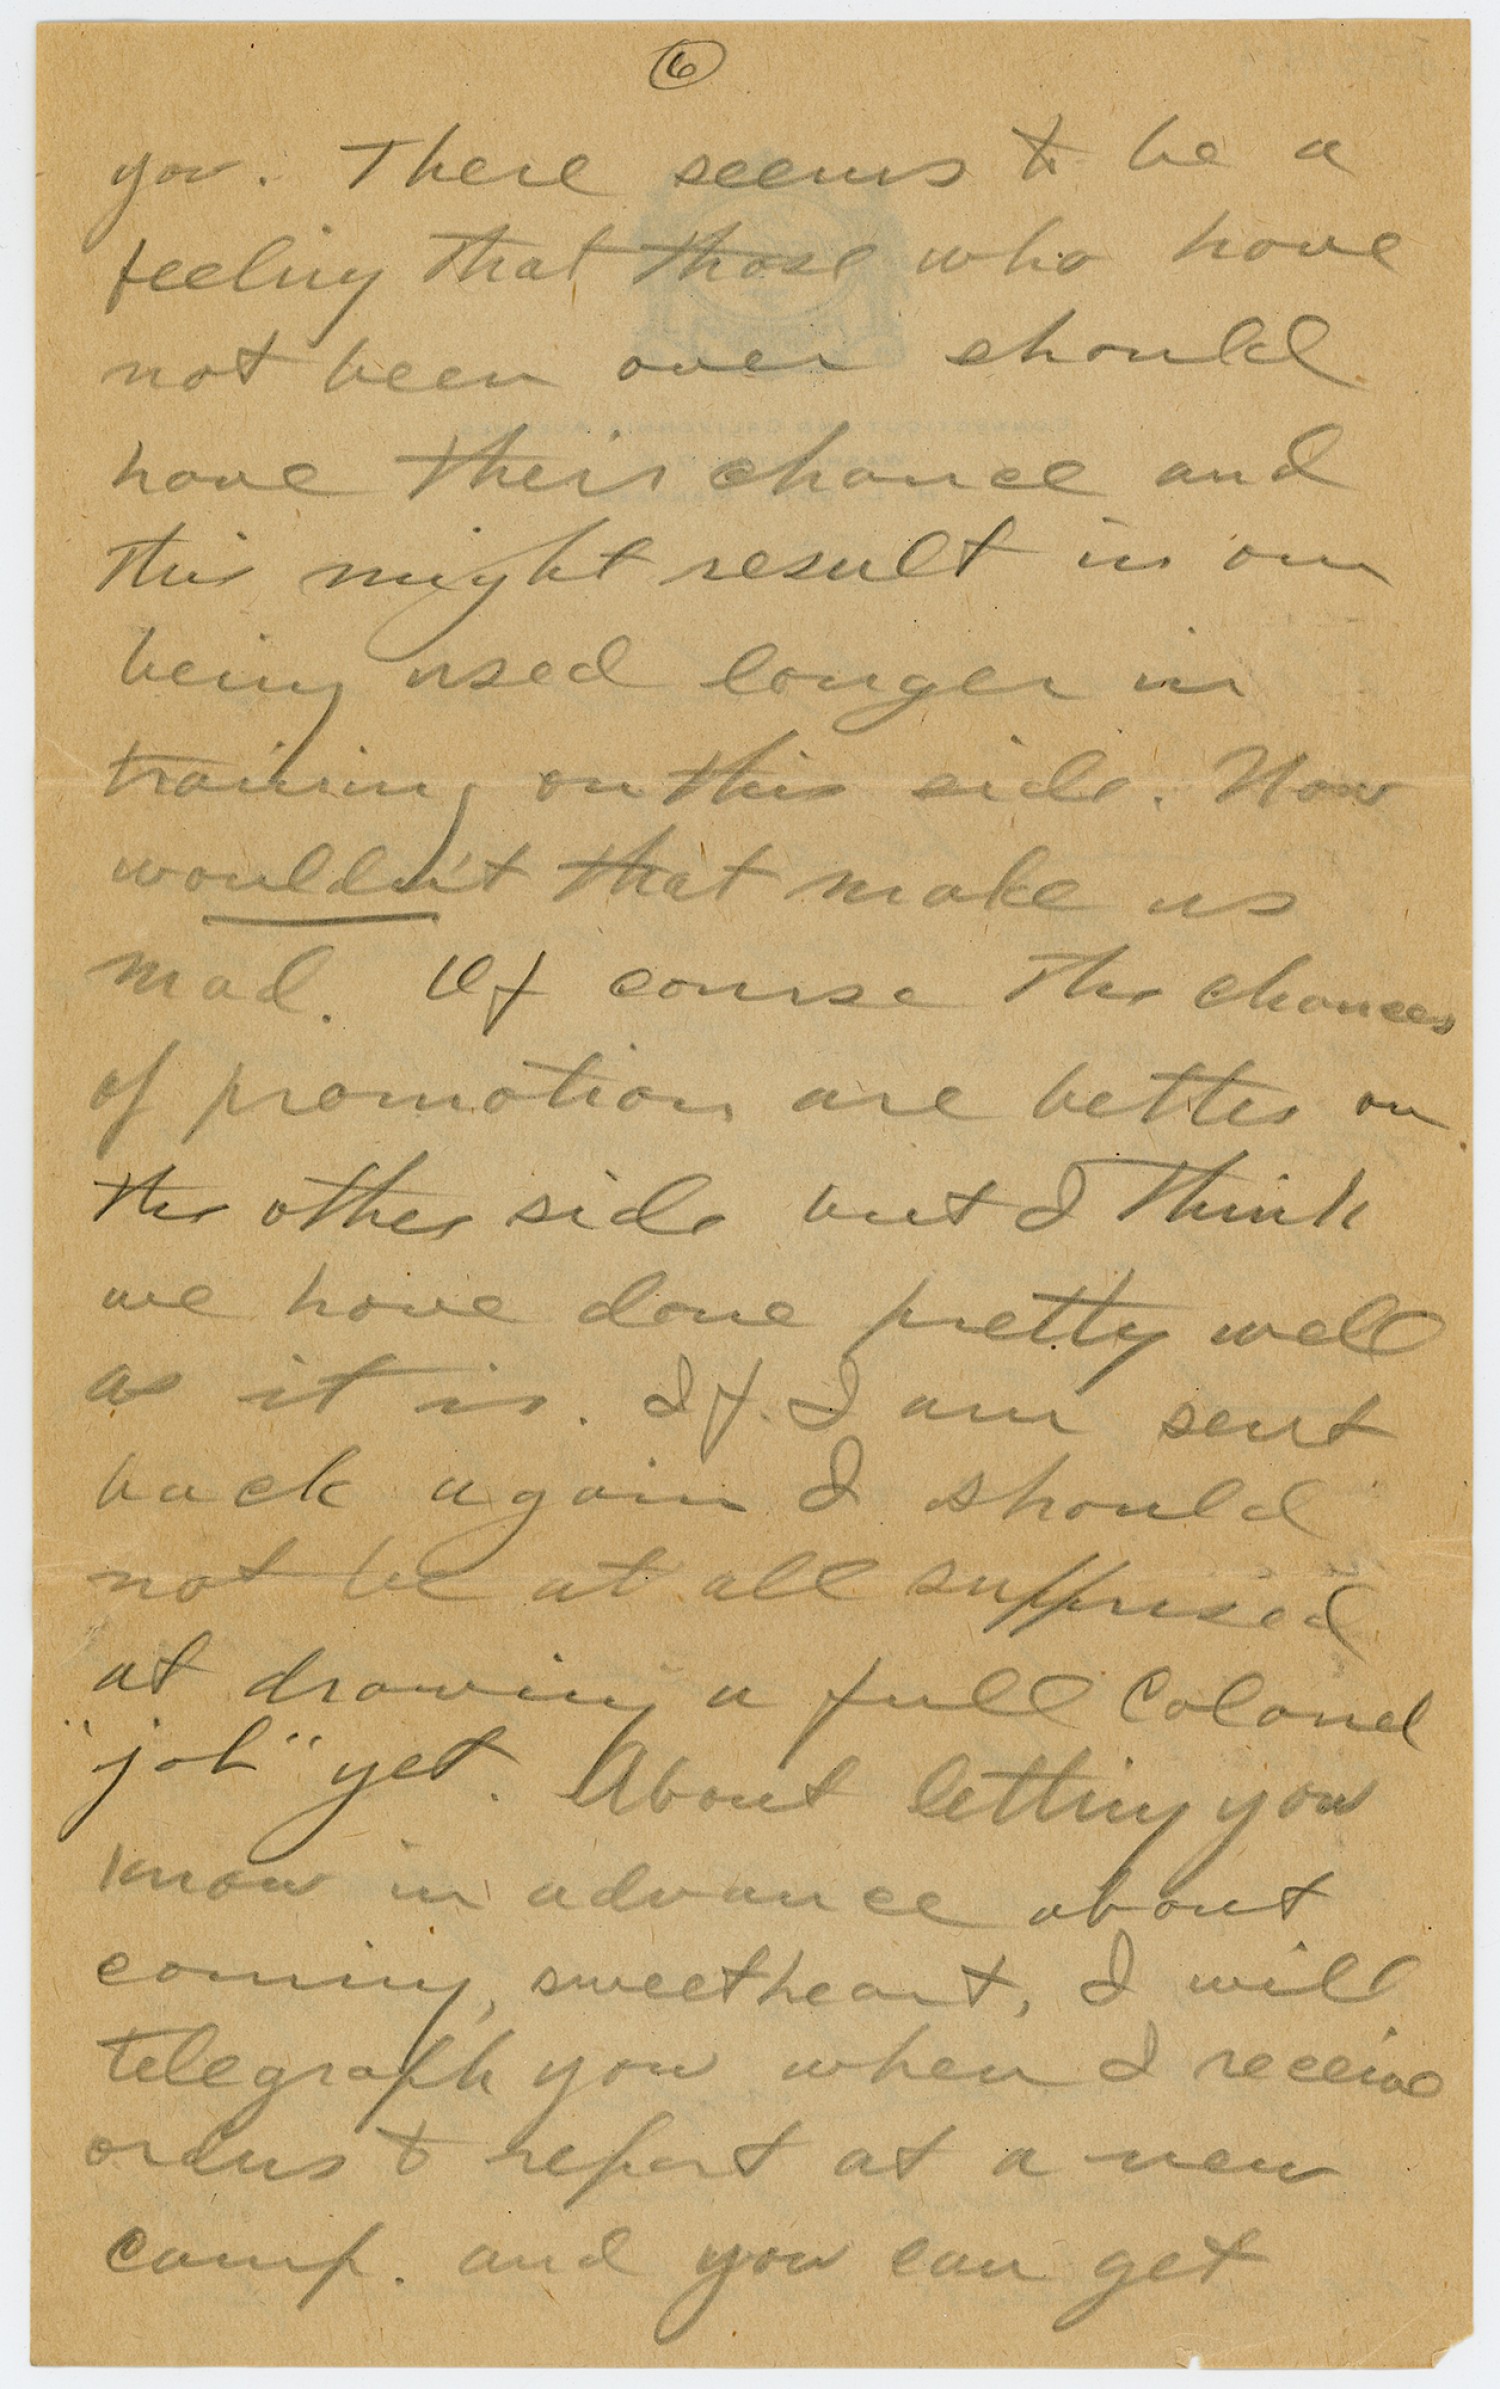 6
you. There seems to be a
feeling that those who have
not been over should
have their chance and
this might result in our
being used longer in
training on this side. Now
wouldn't that make us
mad. Of course the chances
of promotion are better on
the other side but I think
we have done pretty well
as it is. If I am sent
back again I should
not be at all supprised
at drawing a full Colonel
"job" yet. About letting you
know in advance about
coming, sweetheart, I will
telegraph you when I receive
orders to report at a new
camp. and you can get